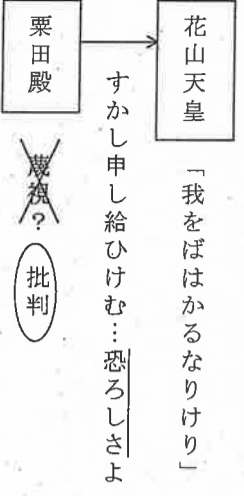 花山天皇 「我をばはかるなりけり」
すかし申し給ひけむ…恐ろしさよ
粟田殿 蔑視？ 批判